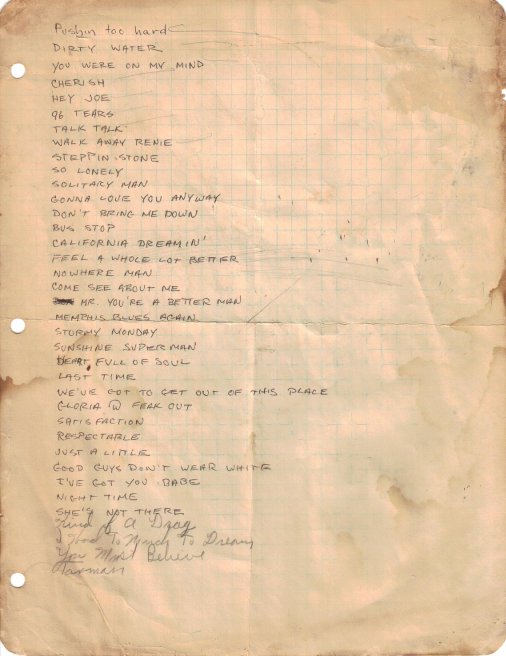 Pushin too hard
DIRTY WATER
YOU WERE ON MY MIND
CHERISH
HEY JOE
96 TEARS
TALK TALK
WALK AWAY RENIE
STEPPIN STONE
SO LONELY
SOLITARY MAN
GONNA LOVE YOU ANYWAY
DON'T BRING ME DOWN
BUS STOP
CALIFORNIA DREAMIN'
FEEL A WHOLE LOT BETTER
NOWHERE MAN
COME SEE ABOUT ME
MR. YOU'RE A BETTER MAN
MEMPHIS BLUES AGAIN
STORMY MONDAY
SUNSHINE SUPERMAN
HEART FULL OF SOUL
LAST TIME
WE'VE GOT TO GET OUT OF THIS PLACE
GLORIA @ FEAK OUT
SATISFACTION
RESPECTABLE
JUST A LITTLE
GOOD GUYS DON'T WEAR WHITE
I'VE GOT YOU BABE
NIGHT TIME
SHE'S NOT THERE
Kind of A Drag
To Much To Dream
You Must Believe
Taxman